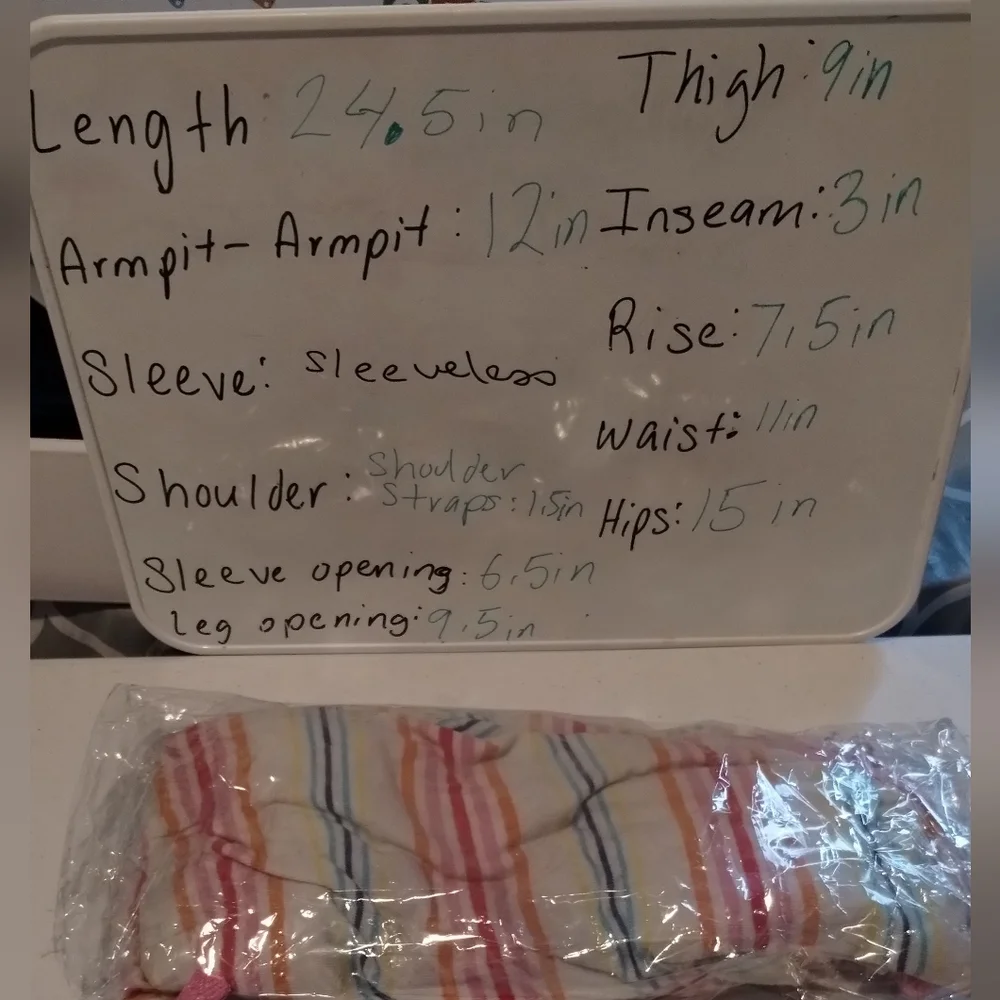 Length: 24.5in
Armpit-Armpit: 12in
Sleeve: Sleeveless
Shoulder: Shoulder
Straps: 1.5in
Sleeve opening: 6.5in
Leg opening: 9.5in
Thigh: 9in
Inseam: 3in
Rise: 7.5in
Waist: 11in
Hips: 15in